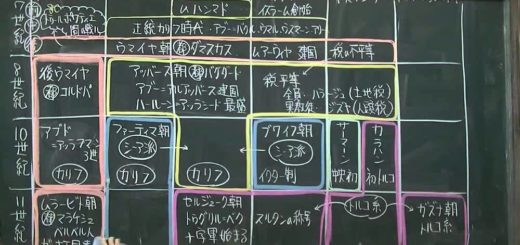 7世紀
ムハンマド
イスラーム創始
トゥール・ポワティエ
正統カリフ時代・アブー=バクル・ウマル・ウスマーン・アリー
ウマイヤ朝 都 ダマスカス
ムアーウィヤ 建国
税の不平等
8世紀
後ウマイヤ
都 コルドバ
アッバース朝 都 バグダード
アブー=アルアッバース建国
ハールーン=アッラシード 最盛
税平等
全員・ハラージュ(土地税)
異教徒・ジズヤ(人頭税)
10世紀
アブド
=アッラフマン
3世
カリフ
ファーティマ朝
シーア派
カリフ
カリフ
ブワイフ朝
シーア派
イクター制
サーマーン
カラハン
初トルコ
11世紀
ムラービト朝
都 マラケシュ
ベルベル人
セルジューク朝
トゥグリル=ベク
十字軍始まる
スルタンの称号
トルコ系
ガズナ朝
トルコ系